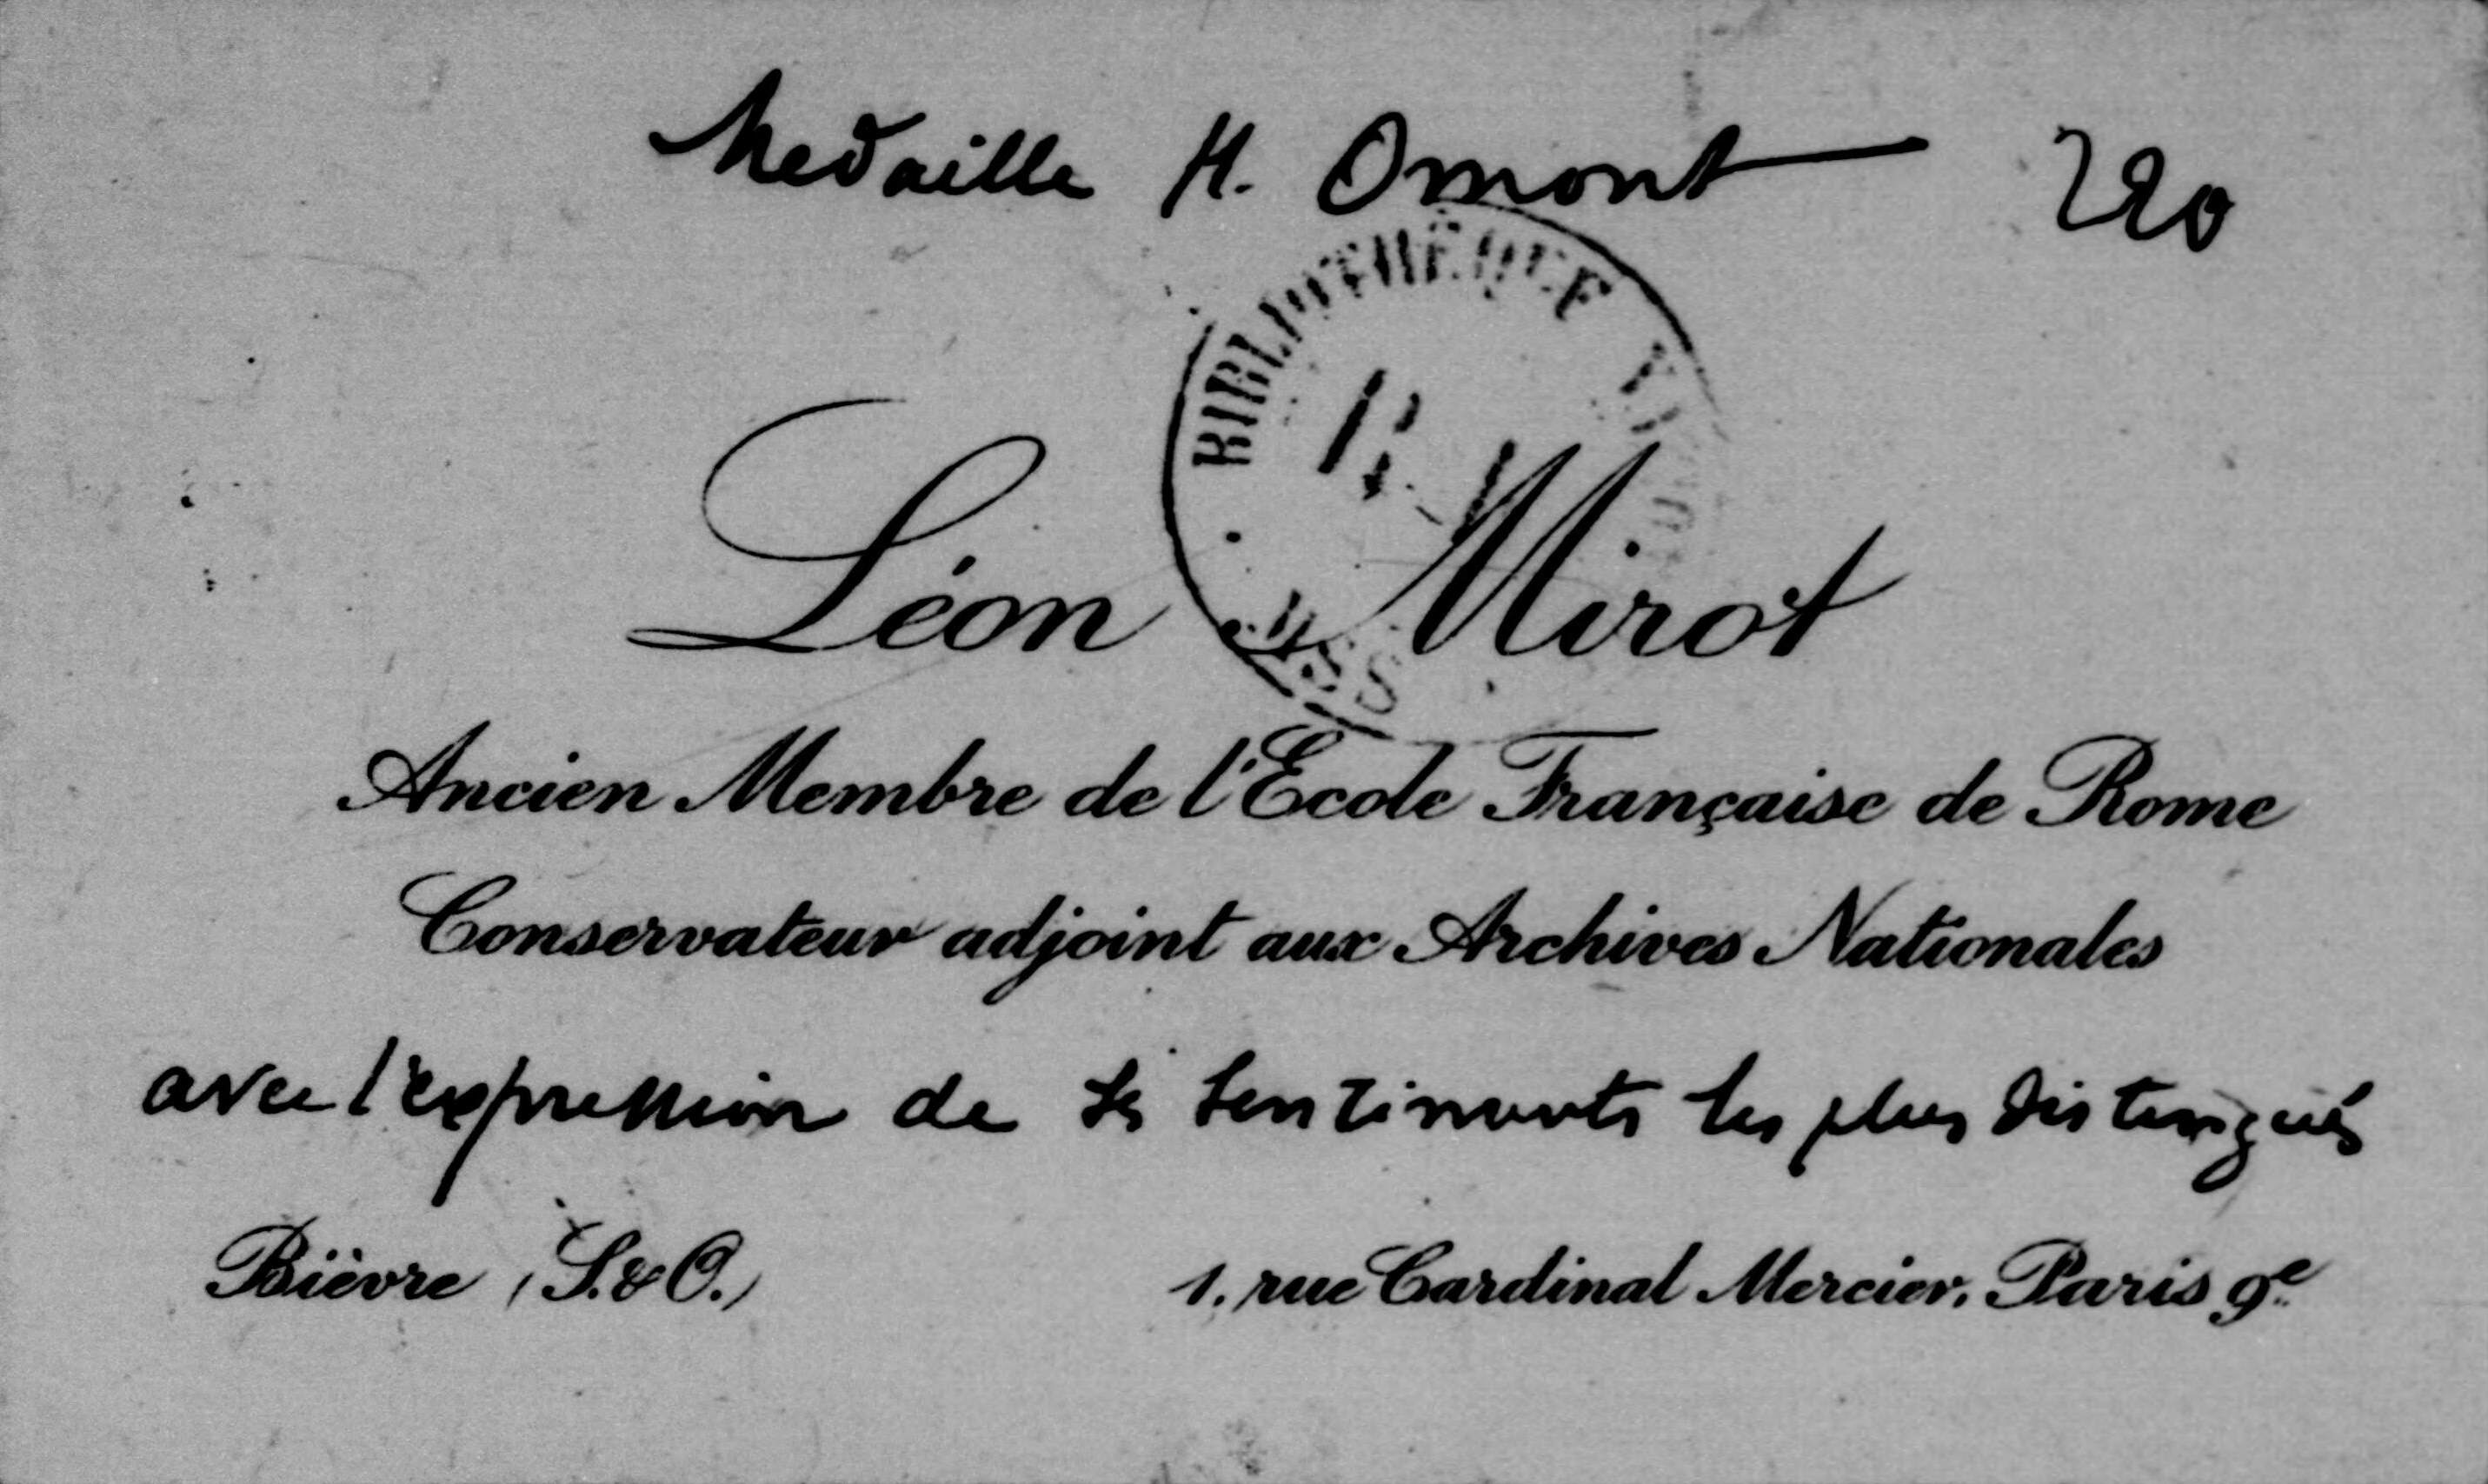 Medaille H. Omont 220
BIBLIOTHÈQUE
MSS
Léon Mirot
Ancien Membre de l'École Française de Rome
Conservateur adjoint aux Archives Nationales
avec l'expression de ses sentiments les plus distingués
Bièvre (S.&O.)
1, rue Cardinal Mercier, Paris 9e